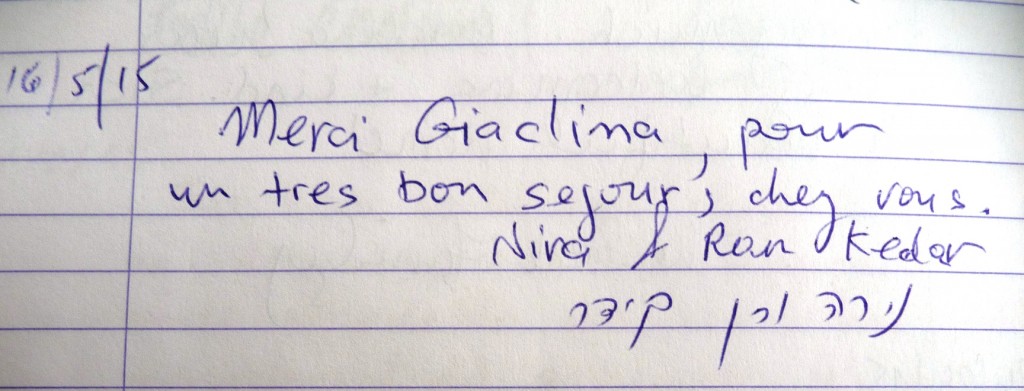 16/5/15
Merci Giaclina, pour
un tres bon sejour, chez vous.
Nira & Ran Kedar
נירה ורן קידר